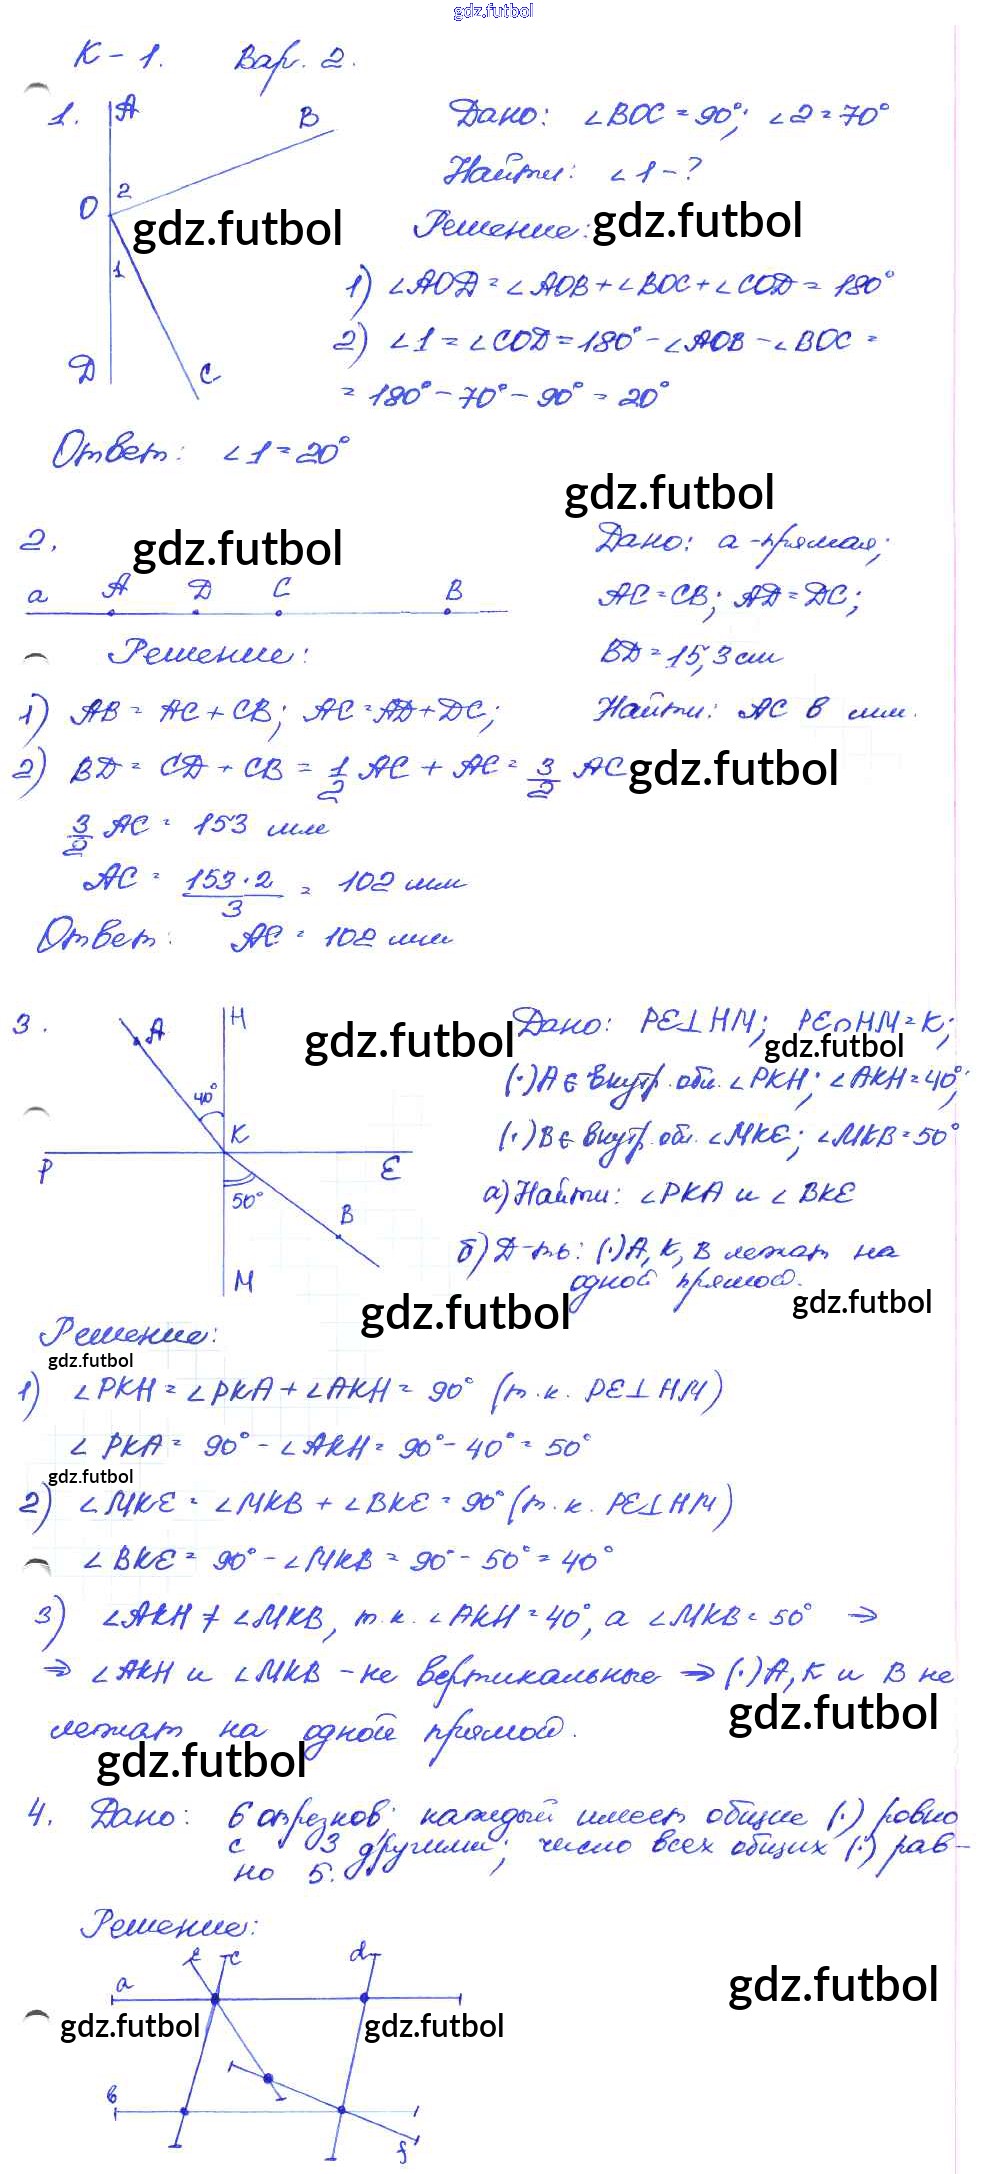 gdz.futbol
К-1. Вар. 2.
1. A B O 2 1 D C
Дано: ∠BOC = 90°; ∠2 = 70°
Найти: ∠1 - ?
gdz.futbol
Решение: gdz.futbol
1) ∠AOD = ∠AOB + ∠BOC + ∠COD = 180°
2) ∠1 = ∠COD = 180° - ∠AOB - ∠BOC =
= 180° - 70° - 90° = 20°
Ответ: ∠1 = 20°
gdz.futbol
2. gdz.futbol
a A D C B
Дано: a - прямая;
AC = CB; AD = DC;
BD = 15,3 см
Найти: AC в мм.
Решение:
1) AB = AC + CB; AC = AD + DC;
2) BD = CD + CB = 1/2 AC + AC = 3/2 AC gdz.futbol
3/2 AC = 153 мм
AC = 153·2/3 = 102 мм
Ответ: AC = 102 мм
3. A H 40° K P E 50° B M
gdz.futbol
Дано: PE⊥HM; PE∩HM = K;
gdz.futbol
(·)A ∈ внутр. обл. ∠PKH; ∠AKH = 40°;
(·)B ∈ внутр. обл. ∠MKE; ∠MKB = 50°
а) Найти: ∠PKA и ∠BKE
б) Д-ть: (·)A, K, B лежат на
одной прямой.
gdz.futbol
gdz.futbol
Решение:
gdz.futbol
1) ∠PKH = ∠PKA + ∠AKH = 90° (т.к. PE⊥HM)
∠PKA = 90° - ∠AKH = 90° - 40° = 50°
gdz.futbol
2) ∠MKE = ∠MKB + ∠BKE = 90° (т.к. PE⊥HM)
∠BKE = 90° - ∠MKB = 90° - 50° = 40°
3) ∠AKH ≠ ∠MKB, т.к. ∠AKH = 40°, а ∠MKB = 50° ⇒
⇒ ∠AKH и ∠MKB - не вертикальные ⇒ (·)A, K и B не
gdz.futbol
лежат на одной прямой.
gdz.futbol
4. Дано: 6 отрезков; каждый имеет общие (·) ровно
с 3 другими; число всех общих (·) рав-
но 5.
Решение:
a c d
gdz.futbol
gdz.futbol gdz.futbol
в f